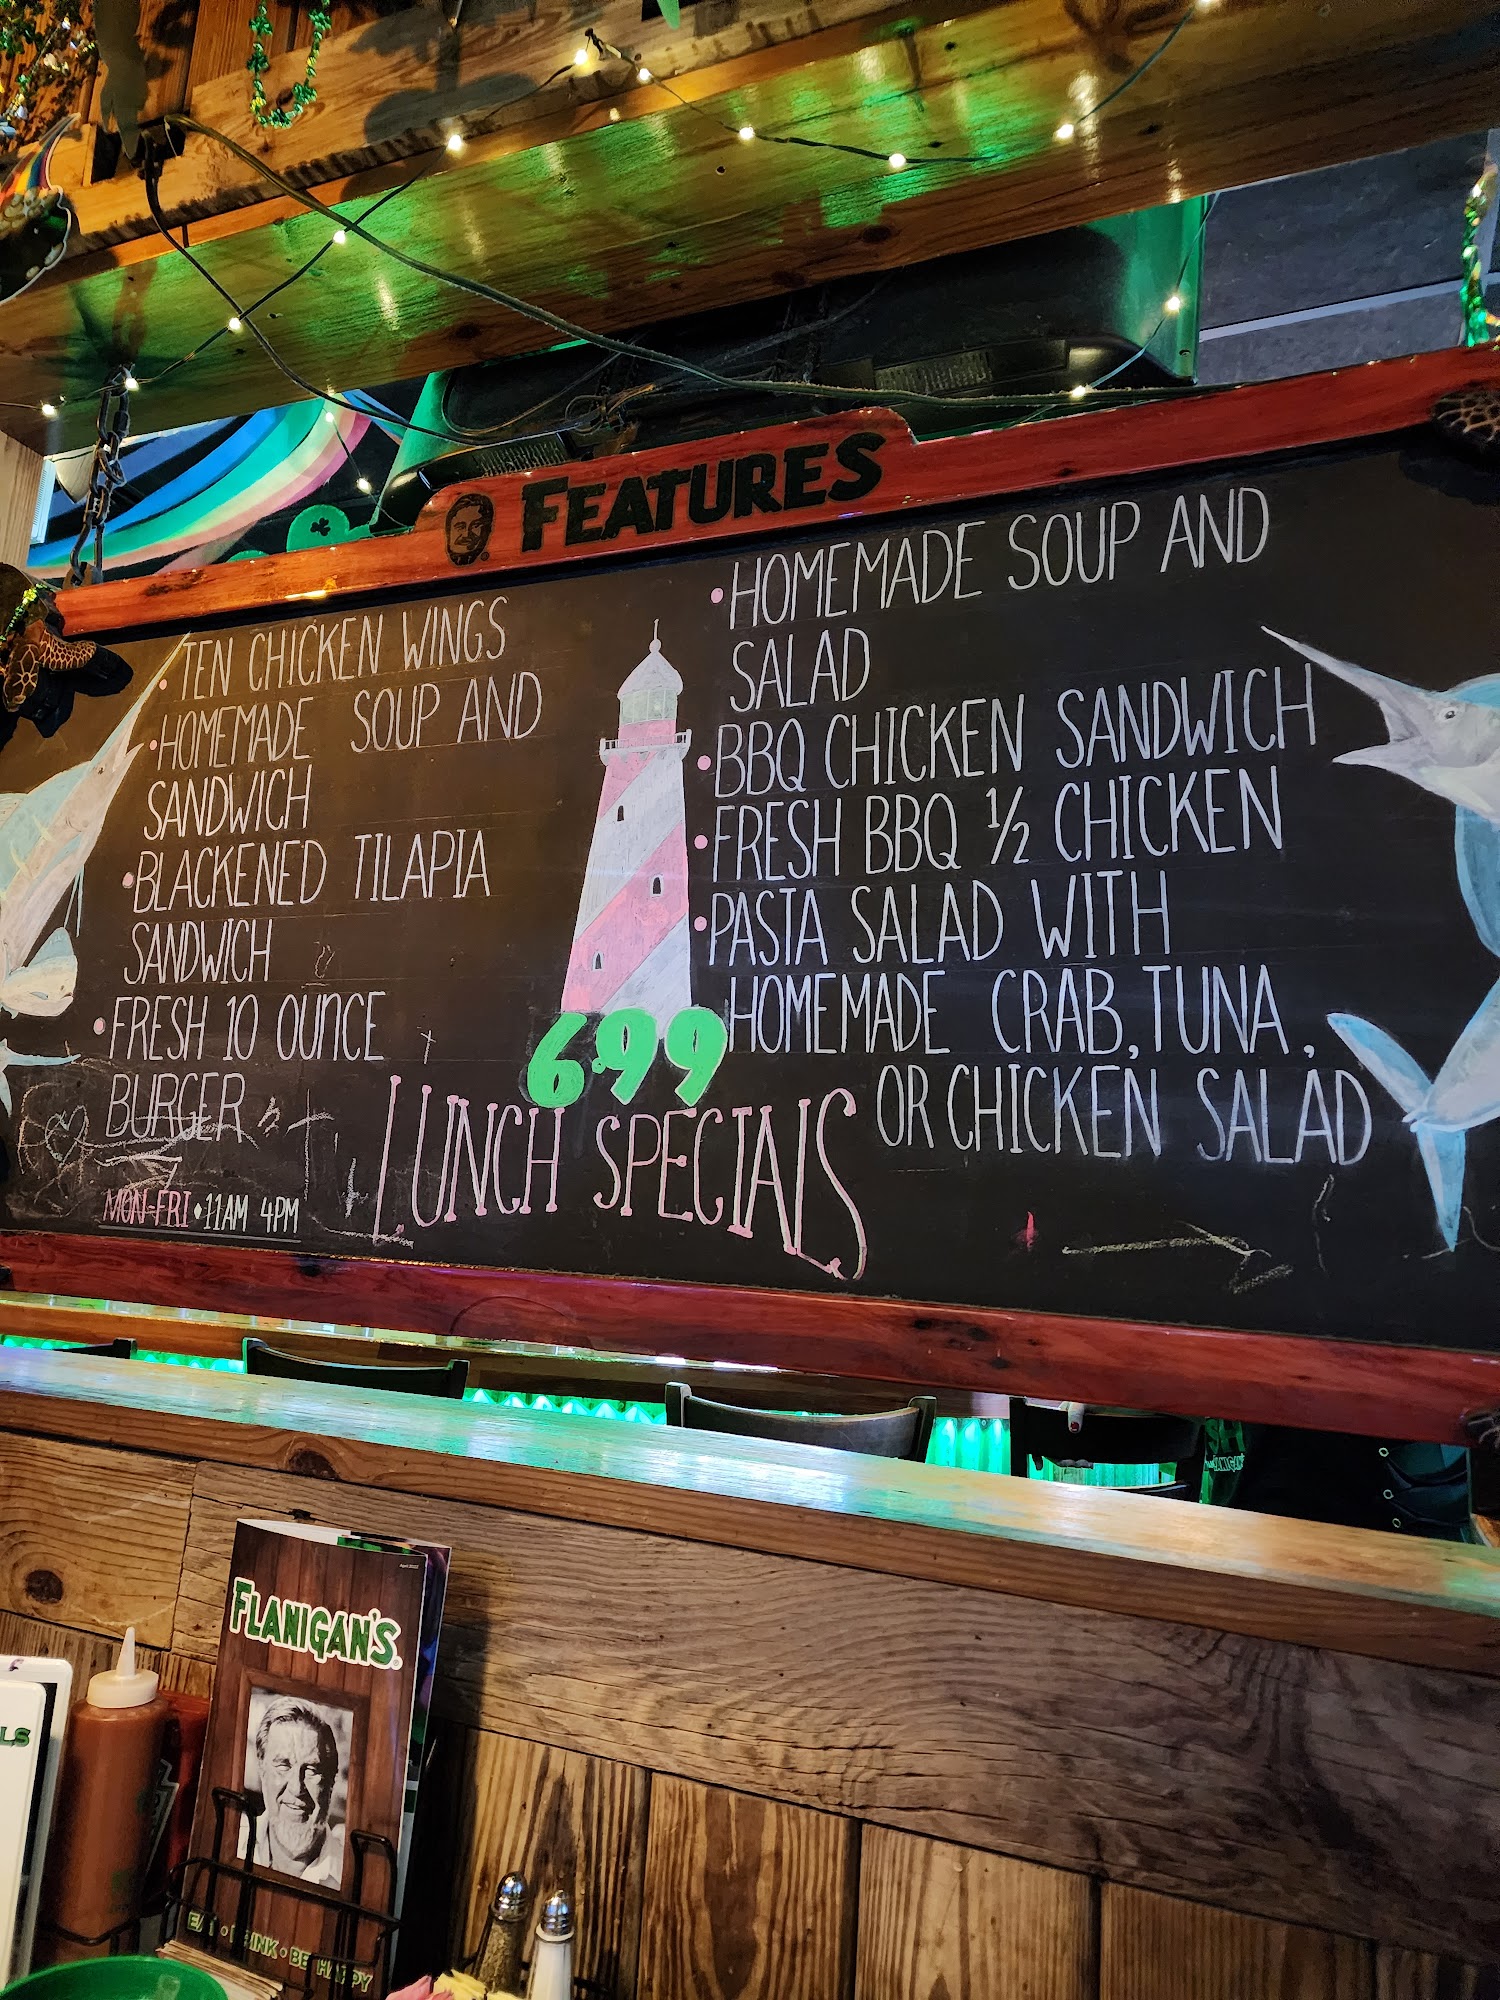 FEATURES
• TEN CHICKEN WINGS
• HOMEMADE SOUP AND
SANDWICH
• BLACKENED TILAPIA
SANDWICH
• FRESH 10 OUNCE
BURGER
MON-FRI • 11AM 4PM
6.99
LUNCH SPECIALS
• HOMEMADE SOUP AND
SALAD
• BBQ CHICKEN SANDWICH
• FRESH BBQ 1/2 CHICKEN
• PASTA SALAD WITH
HOMEMADE CRAB, TUNA,
OR CHICKEN SALAD
FLANIGAN'S®
EAT • DRINK • BE HAPPY
LS